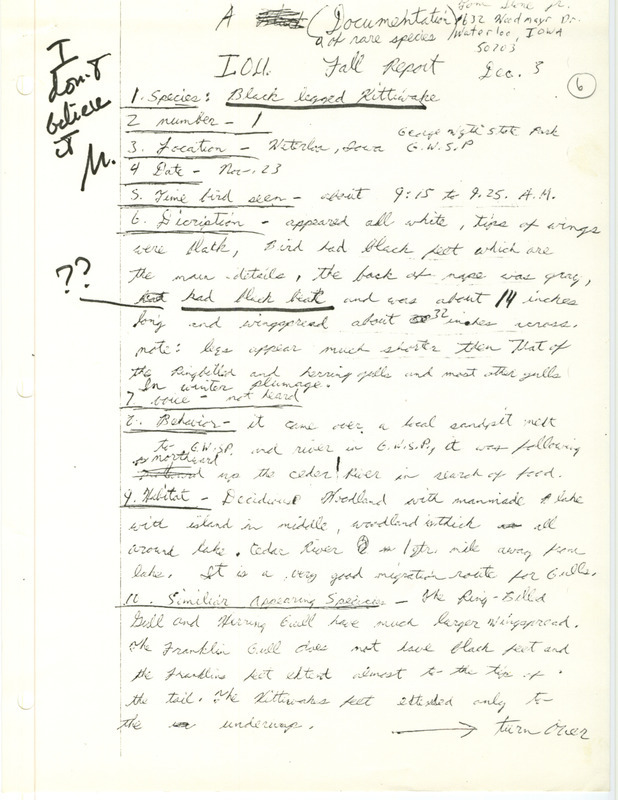 A (Documentation)
of rare species
1632 Woodmayr Dr.
Waterloo, Iowa
50703
I.O.U. Fall Report Dec. 3
6
I
don't
believe
it
M.
1. Species: Black legged Kittiwake
2 number - 1
3. Location - Waterloo, Iowa G.W.S.P
George Wyth State Park
4 Date - Nov. 23
5. Time bird seen - about 9:15 to 9:25. A.M.
6. Discription - appeared all white, tips of wings
were black, Bird had black feet which are
the main details, the back of nape was gray,
??
had black beak and was about 14 inches
long and wingspread about 32 inches across.
note: legs appear much shorter then that of
the Ringbilled and herring gulls and most other gulls
In winter plumage.
7. voice - not heard
8. Behavior - it came over a local sandpit next
to G.W.S.P. and river in G.W.S.P, it was following
northward
up the ceder River in search of food.
9. Habitat - Deciduous Woodland with manmade lake
with island in middle, woodland is thick all
around lake. Cedar River is 1/4 mile away from
lake. It is a very good migration route for Gulls.
10. Similiar Appearing Species - the Ring-Billed
Gull and Herring Gull have much larger wingspread.
The Franklin Gull does not have black feet and
the Franklins feet extend almost to the tip of
the tail. The Kittiwakes feet extended only to
the underwap.
turn over